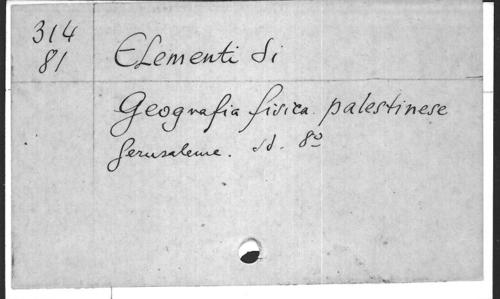 314
81
Elementi di
Geografia fisica palestinese
Jerusaleme. s d. 8º